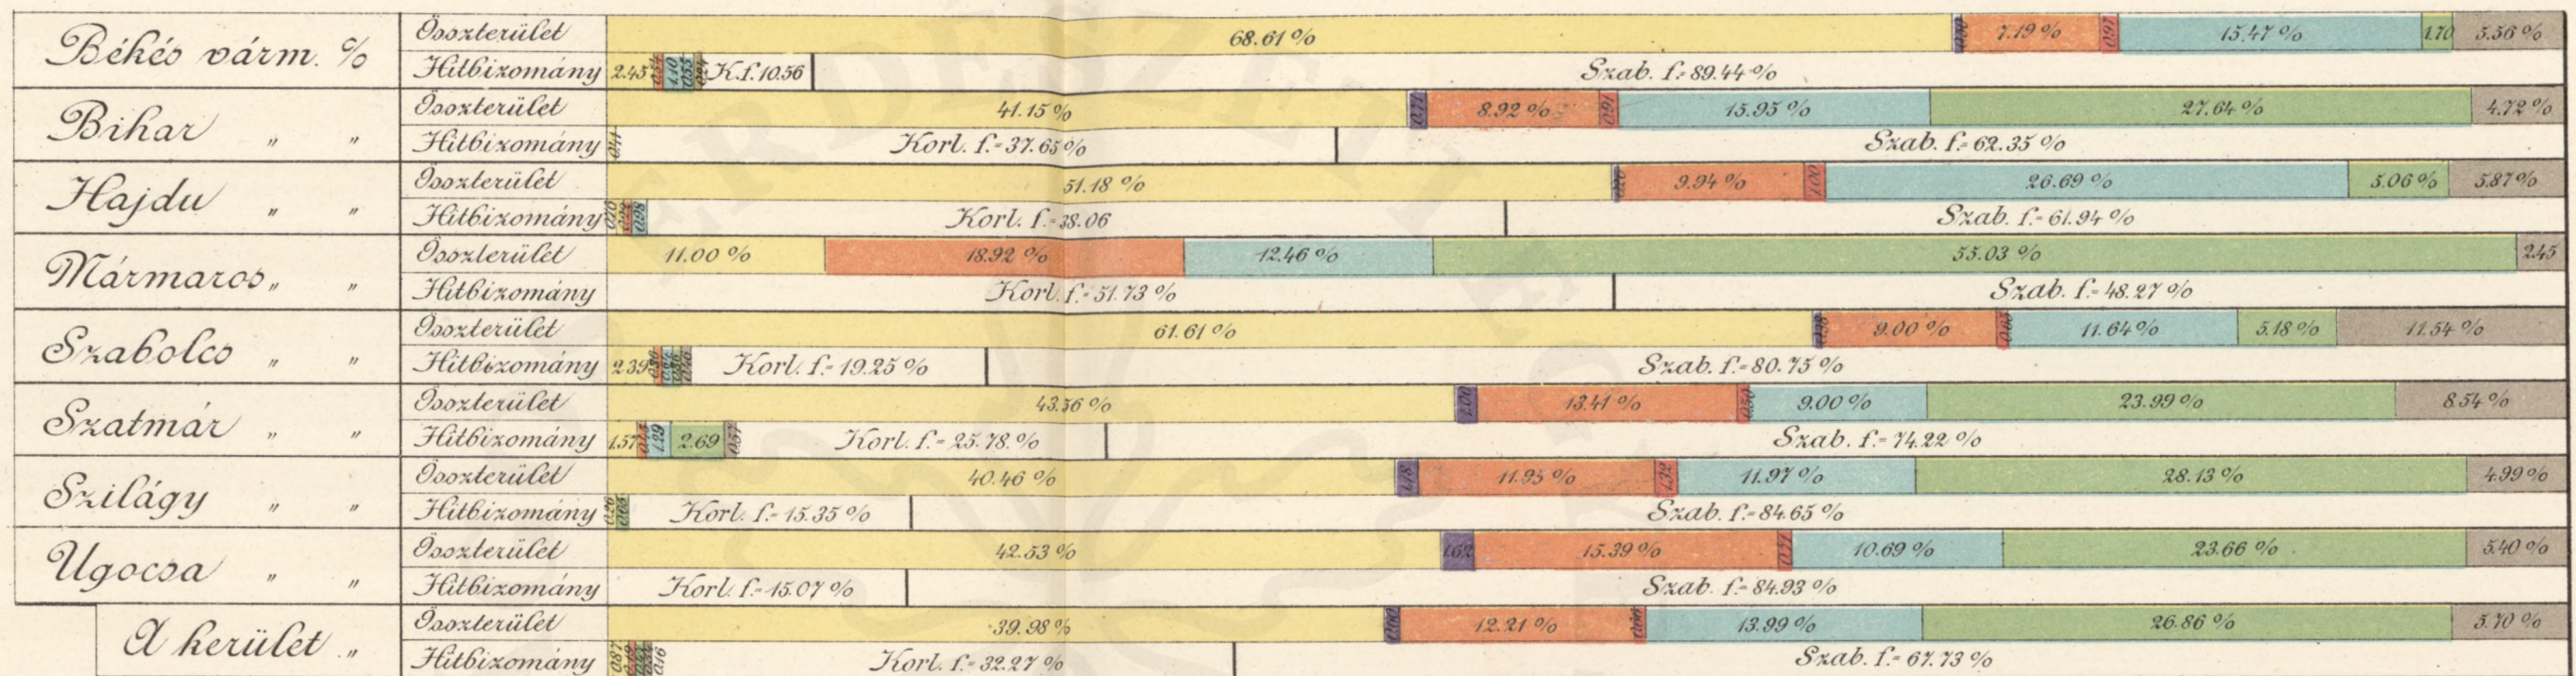 Békés várm. % Összterület 68.61 % 7.19 % 0.97 15.47 % 1.70 5.56 %
Hitbizomány 2.45 1.10 0.55 K.f. 10.56 Szab. f.= 89.44 %
Bihar " " Összterület 41.15 % 0.71 8.92 % 0.91 15.95 % 27.64 % 4.72 %
Hitbizomány Korl. f.= 37.65 % Szab. f.= 62.35 %
Hajdu " " Összterület 51.18 % 9.94 % 1.00 26.69 % 5.06 % 5.87 %
Hitbizomány 0.98 Korl. f.= 38.06 Szab. f.= 61.94 %
Mármaros " " Összterület 11.00 % 18.92 % 12.46 % 55.03 % 2.45
Hitbizomány Korl. f.= 51.73 % Szab. f.= 48.27 %
Szabolcs " " Összterület 61.61 % 9.00 % 11.64 % 5.18 % 11.54 %
Hitbizomány 2.39 Korl. f.= 19.25 % Szab. f.= 80.75 %
Szatmár " " Összterület 43.56 % 1.00 13.41 % 0.50 9.00 % 23.99 % 8.54 %
Hitbizomány 1.57 1.29 2.69 0.57 Korl. f.= 25.78 % Szab. f.= 74.22 %
Szilágy " " Összterület 40.46 % 1.18 11.95 % 1.32 11.97 % 28.13 % 4.99 %
Hitbizomány Korl. f.= 15.35 % Szab. f.= 84.65 %
Ugocsa " " Összterület 42.53 % 1.62 15.39 % 0.71 10.69 % 23.66 % 5.40 %
Hitbizomány Korl. f.= 15.07 % Szab. f.= 84.93 %
A kerület " Összterület 39.98 % 0.60 12.21 % 13.99 % 26.86 % 5.70 %
Hitbizomány 0.87 0.16 Korl. f.= 32.27 % Szab. f.= 67.73 %